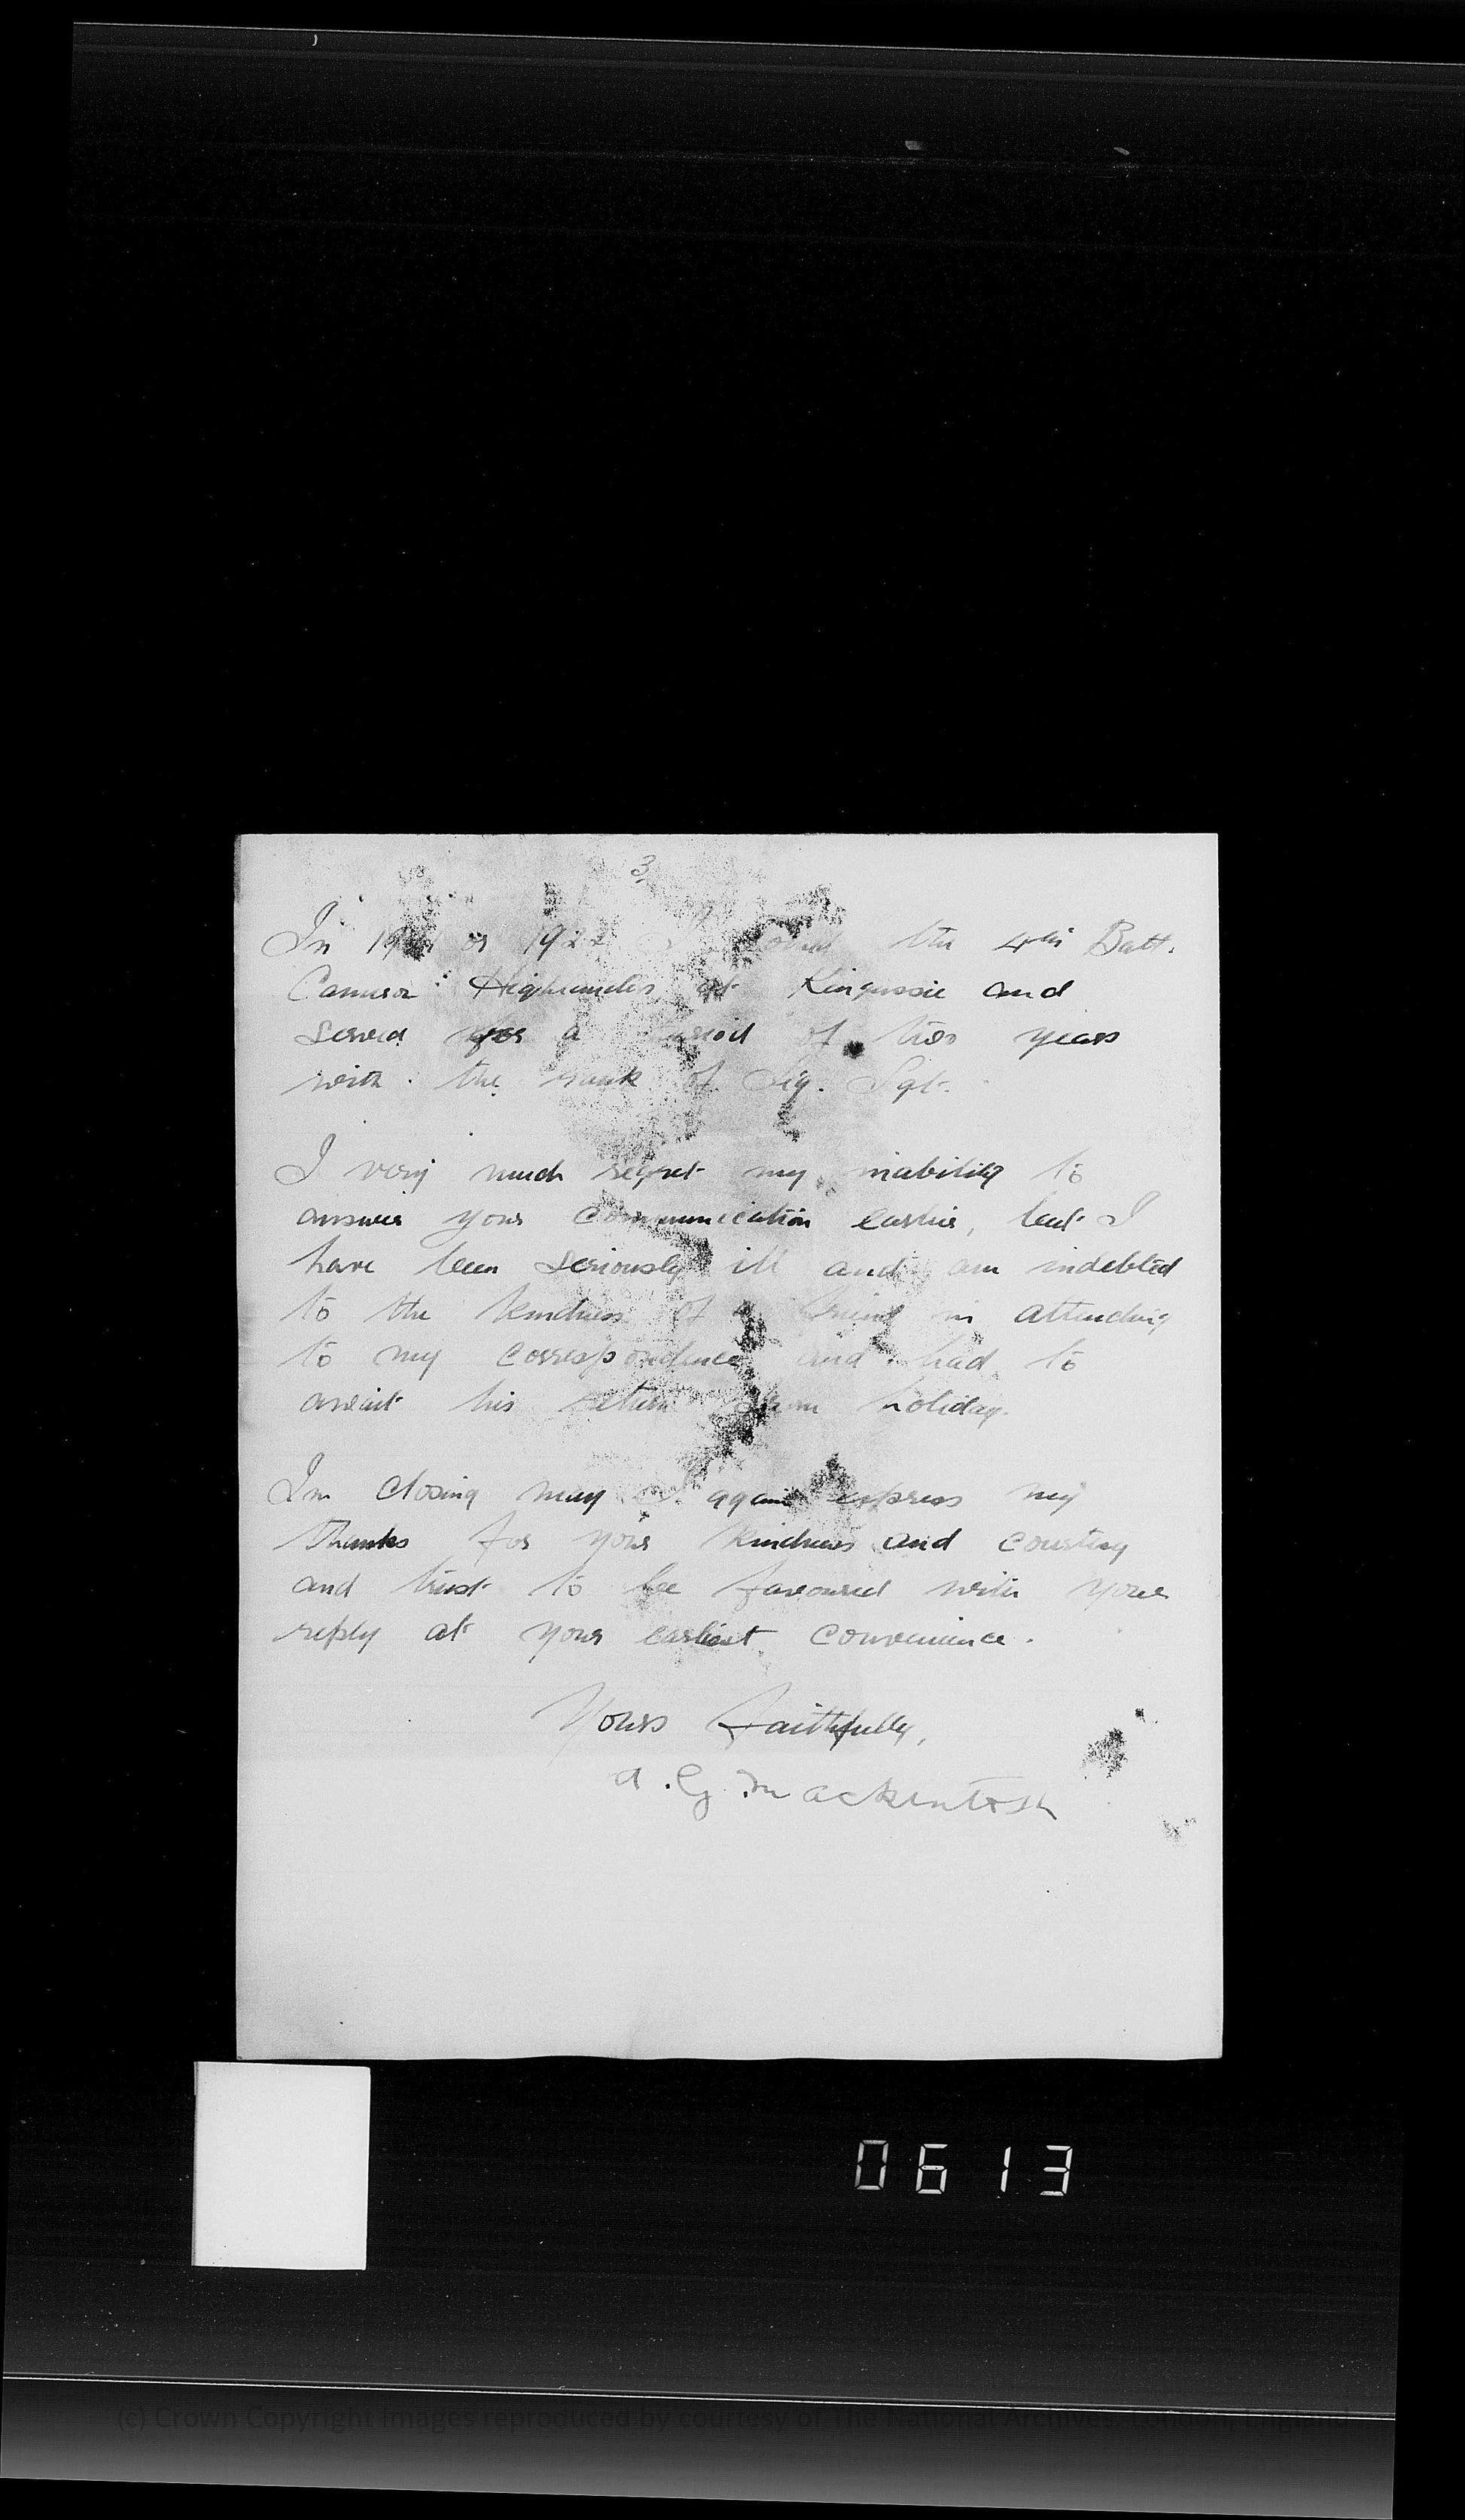 3.
In 19 or 1922 I joined the 4th Batt.
Cameron Highlanders at Kingussie and
served for a period of two years
with the rank of Sig. Sgt.
I very much regret my inability to
answer your communication earlier, but I
have been seriously ill and am indebted
to the kindness of a friend in attending
to my correspondence and had to
await his return from holiday.
In closing may I again express my
thanks for your kindness and courtesy
and trust to be favoured with your
reply at your earliest convenience.
Yours faithfully,
A. G. Mackintosh
0613
(c) Crown Copyright Images reproduced by courtesy of The National Archives, London, England